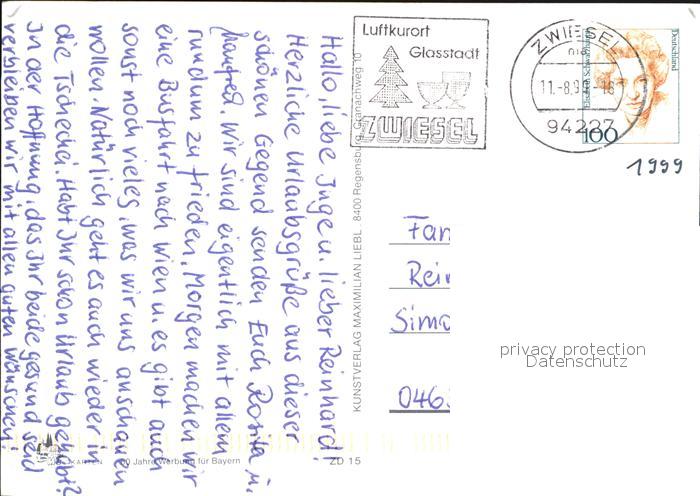 Hallo, liebe Inge u. lieber Reinhard!
Herzliche Urlaubsgrüße aus dieser
schönen Gegend senden Euch Rosita u.
Manfred. Wir sind eigentlich mit allen
rundum zufrieden. Morgen machen wir
eine Busfahrt nach Wien u. es gibt auch
sonst noch vieles, was wir uns anschauen
wollen. Natürlich geht es auch wieder in
die Tschechei. Habt Ihr schon Urlaub gehabt?
In der Hoffnung, das Ihr beide gesund seid
verbleiben wir mit allen guten Wünschen
KUNSTVERLAG MAXIMILIAN LIEBL · 8400 Regensburg, Granachweg 10
KARTEN
Jahre Werbung für Bayern
ZD 15
Luftkurort
Glasstadt
ZWIESEL
ZWIESEL
11.-8.9
94227
Deutschland
100
1999
Fam
Rein
Simo
046
privacy protection
Datenschutz